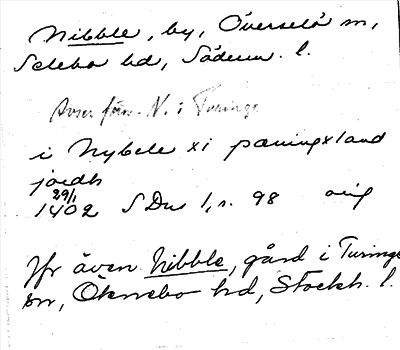 Nibble, by, Överselö sn,
Selebo hd, Söderm. l.
Avser förm. N. i Turinge
i Nybele xi pæningxland
jordh
29/1
1402 SDns 1, s. 98 orig
Jfr även Nibble, gård i Turinge
sn, Öknebo hd, Stockh. l.